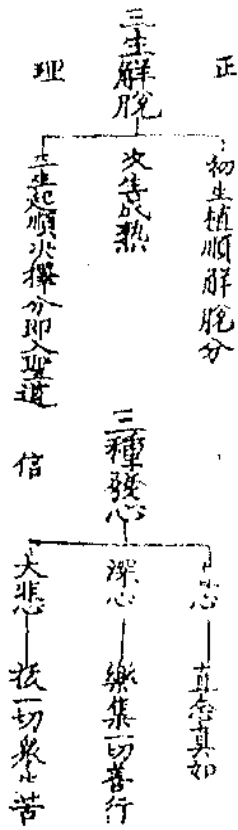 正
理
三生解脫
初生植順解脫分
次生成熟
三生起順決擇分即入聖道
信
三種發心
心
直念真如
深心
樂集一切善行
大悲心
拔一切眾生苦